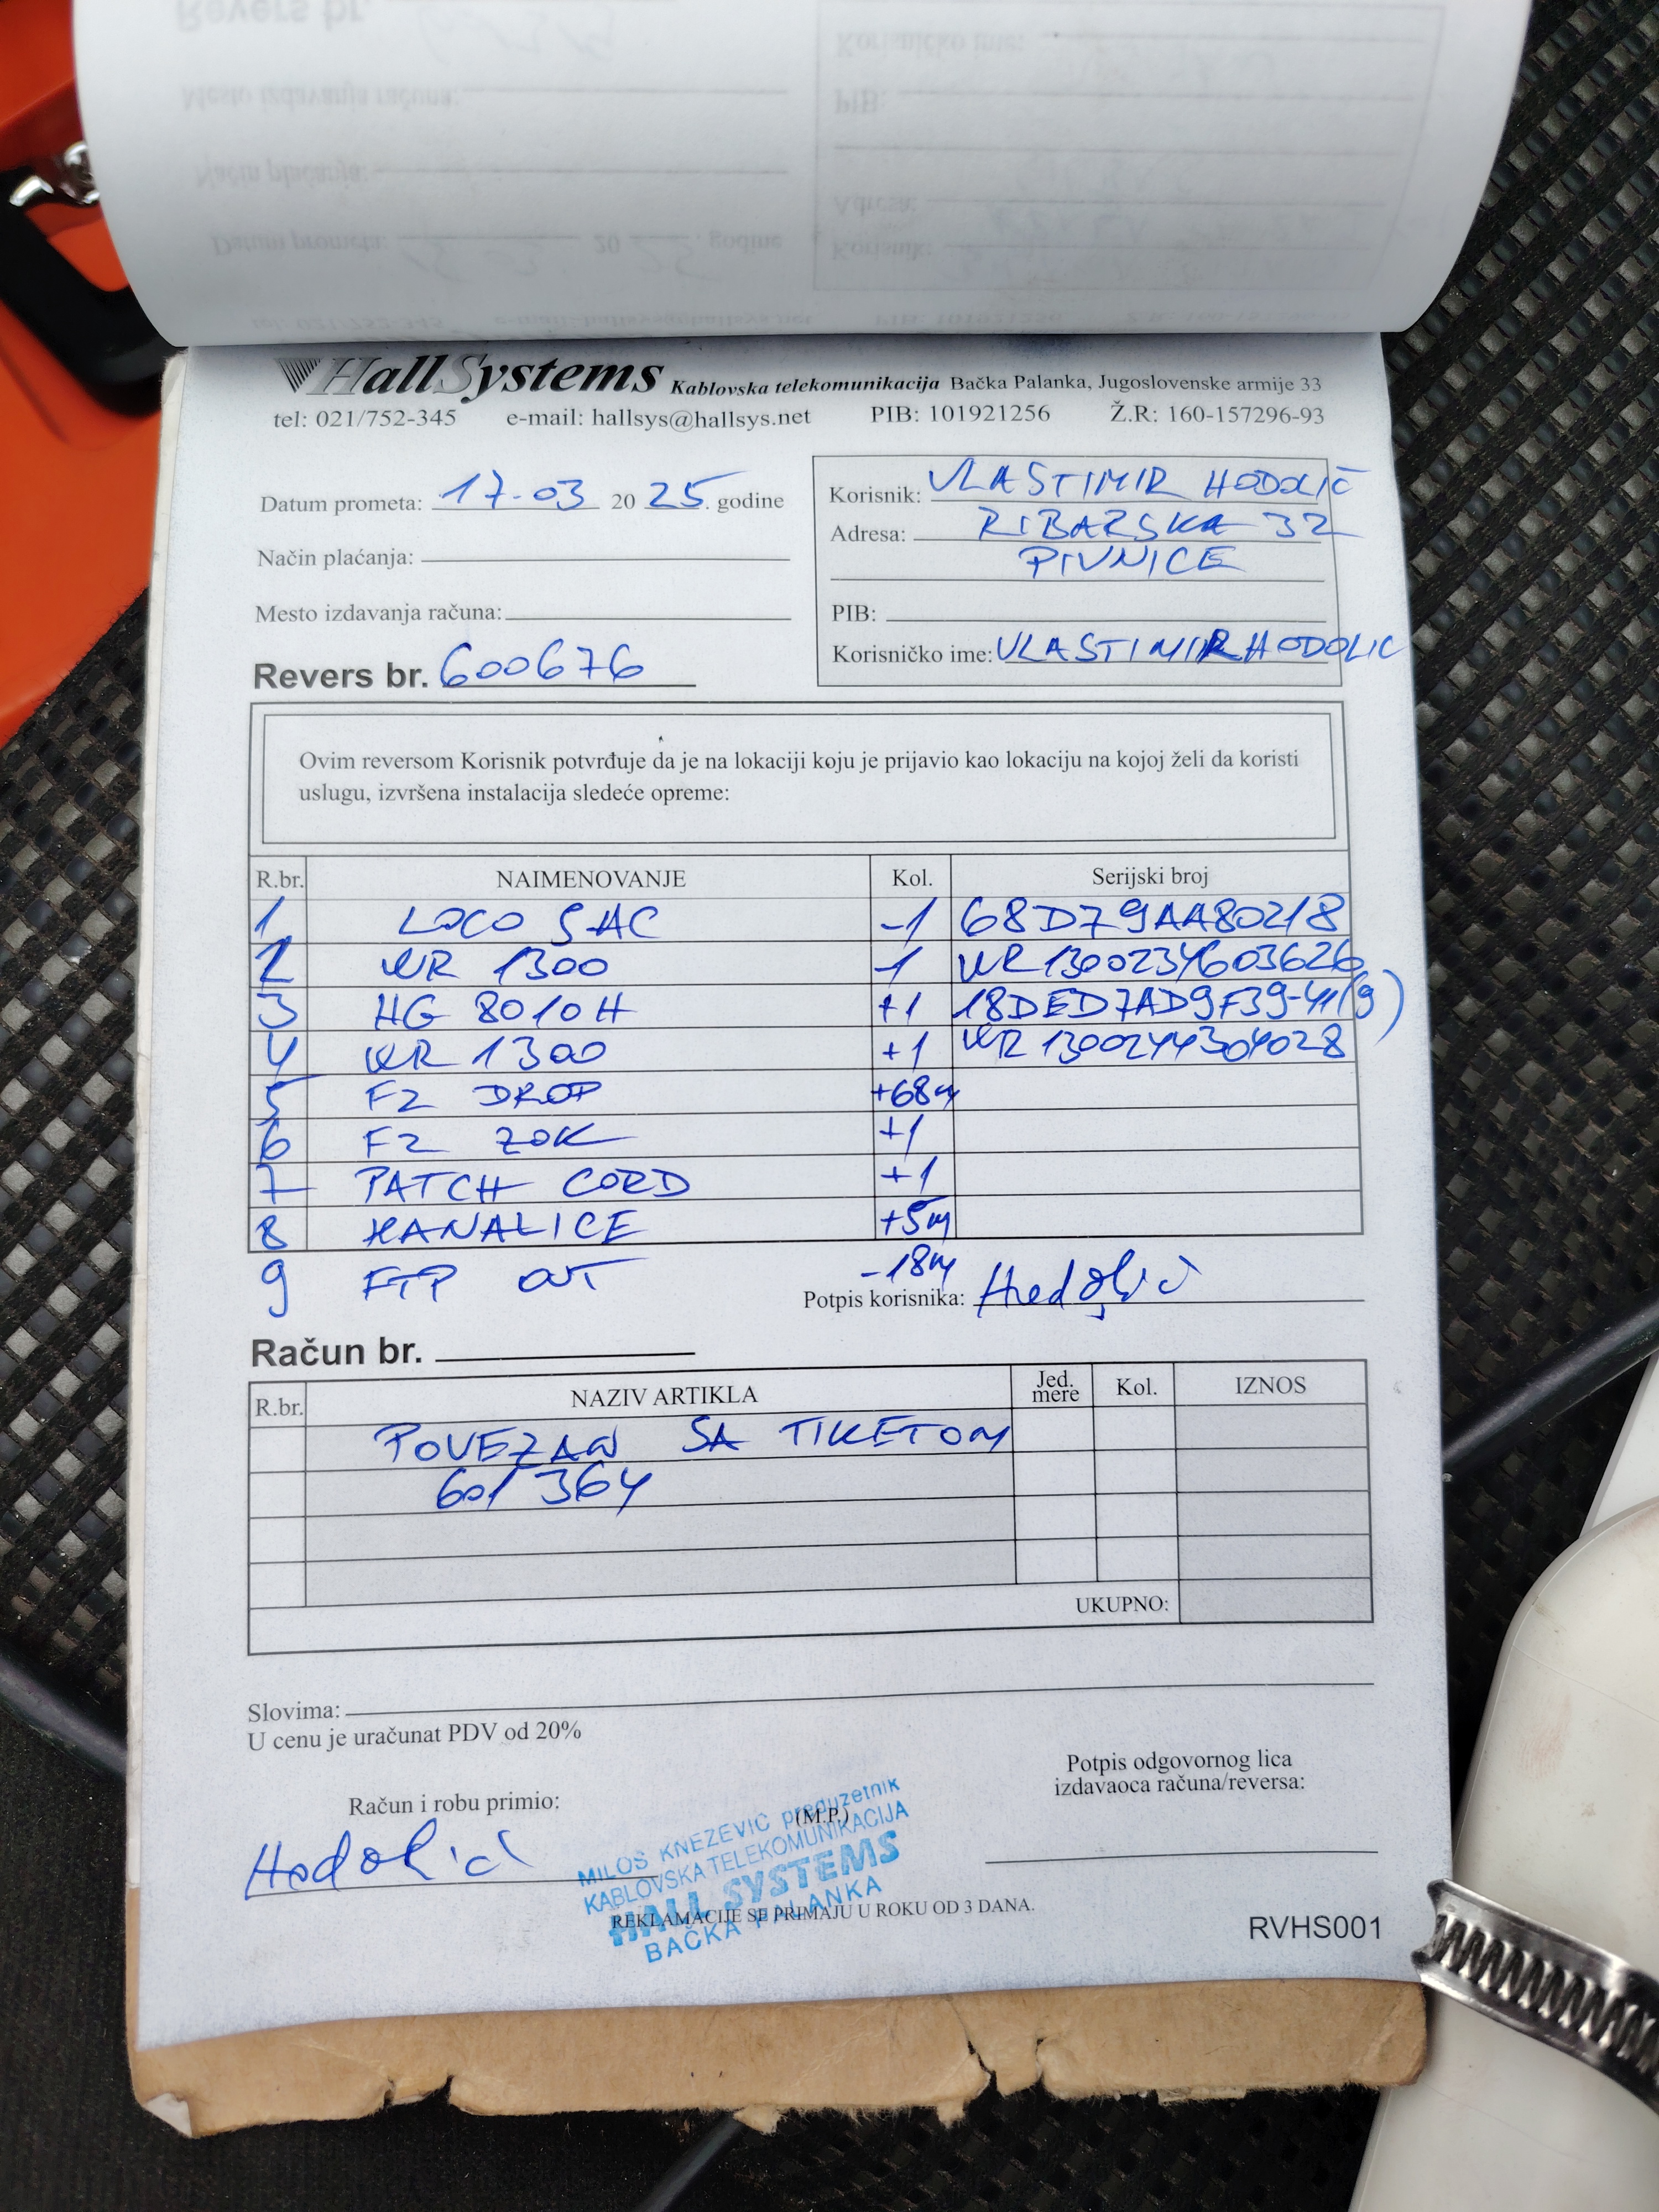 HallSystems Kablovska telekomunikacija Bačka Palanka, Jugoslovenske armije 33
tel: 021/752-345 e-mail: hallsys@hallsys.net PIB: 101921256 Ž.R: 160-157296-93
Datum prometa: 17-03 2025. godine
Način plaćanja:
Mesto izdavanja računa:
Revers br. 600676
Korisnik: VLASTIMIR HODOLIČ
Adresa: RIBARSKA 32
PIVNICE
PIB:
Korisničko ime: VLASTIMIRHODOLIC
Ovim reversom Korisnik potvrđuje da je na lokaciji koju je prijavio kao lokaciju na kojoj želi da koristi
uslugu, izvršena instalacija sledeće opreme:
R.br. NAIMENOVANJE Kol. Serijski broj
1 LOCO 5AC -1 68D79AA80218
2 WR 1300 -1 WR1300234603626
3 HG 8010H +1 18DED7AD9F39-41(9)
4 WR 1300 +1 WR1300244304028
5 F2 DROP +68m
6 F2 ZOK +1
7 PATCH CORD +1
8 KANALICE +5m
9 FTP OUT -18m
Potpis korisnika: Hodolič
Račun br.
R.br. NAZIV ARTIKLA Jed. mere Kol. IZNOS
POVEZAN SA TIKETOM
601364
UKUPNO:
Slovima:
U cenu je uračunat PDV od 20%
Račun i robu primio:
Hodolič
(M.P.)
MILOŠ KNEŽEVIĆ preduzetnik
KABLOVSKA TELEKOMUNIKACIJA
HALL SYSTEMS
BAČKA PALANKA
Potpis odgovornog lica
izdavaoca računa/reversa:
REKLAMACIJE SE PRIMAJU U ROKU OD 3 DANA.
RVHS001